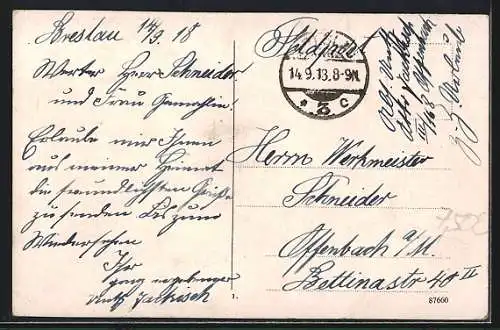 Breslau 14/9.18
Werter Herr Schneider
und Frau Gemahlin!
Erlaube mir Ihnen
aus meiner Heimat
die freundlichsten Grüße
zu senden Bis zum
Wiedersehen
Ihr
ganz ergebener
Jackisch
Feldpost
14.9.18.8-9N.
* 3 c
Herrn Werkmeister
Schneider
Offenbach a/M.
Bettinastr 40 II
1.
87660